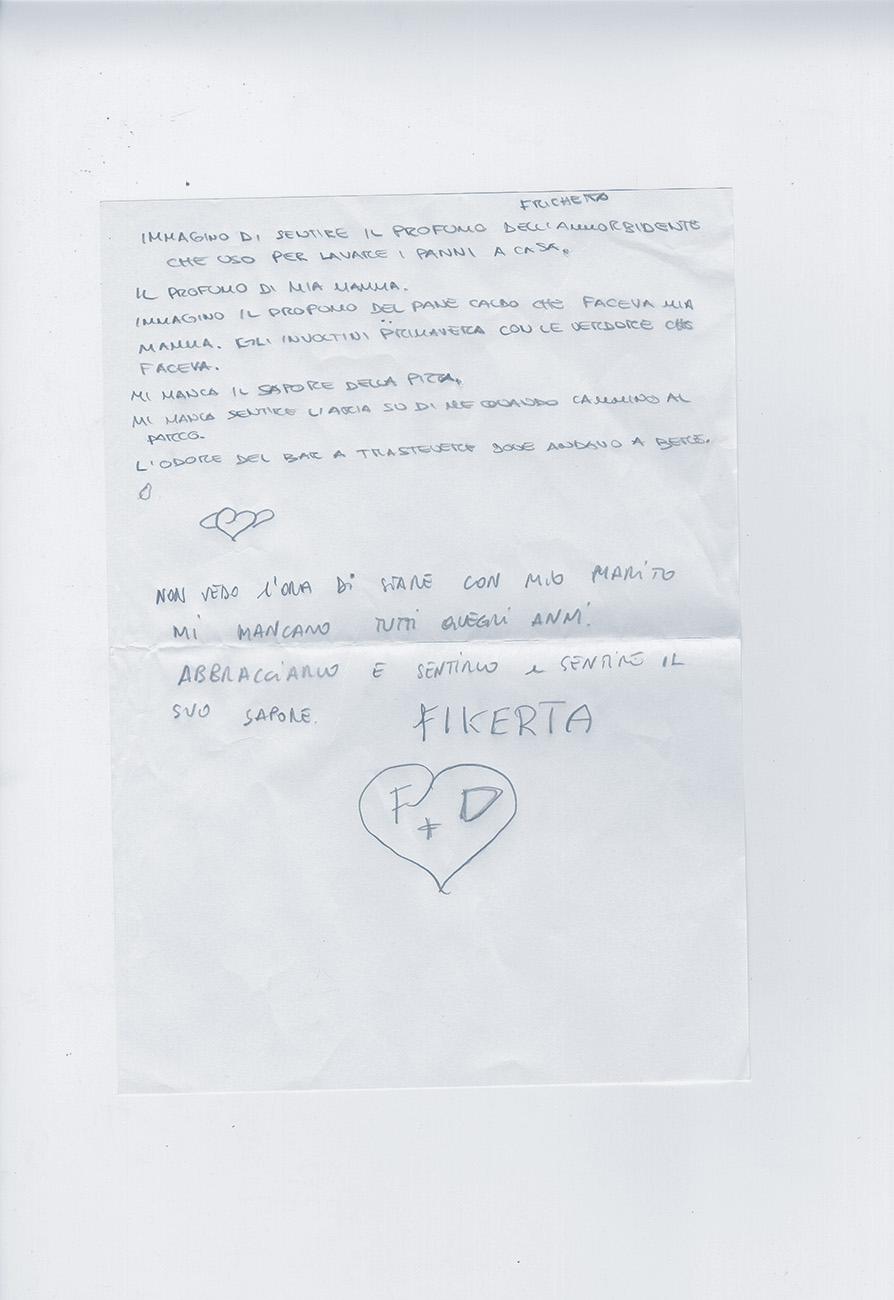 FRICHETO
IMMAGINO DI SENTIRE IL PROFUMO DELL'AMMORBIDENTE
CHE USO PER LAVARE I PANNI A CASA.
IL PROFUMO DI MIA MAMMA.
IMMAGINO IL PROFUMO DEL PANE CALDO CHE FACEVA MIA
MAMMA. GLI INVOLTINI PRIMAVERA CON LE VERDURE CHE
FACEVA.
MI MANCA IL SAPORE DELLA PIZZA.
MI MANCA SENTIRE L'ARIA SU DI ME QUANDO CAMMINO AL
PARCO.
L'ODORE DEL BAR A TRASTEVERE DOVE ANDAVO A BERE.
NON VEDO L'ORA DI STARE CON MIO MARITO
MI MANCANO TUTTI QUEGLI ANNI.
ABBRACCIARLO E SENTIRLO e SENTIRE IL
SUO SAPORE. FIKERTA
F + D